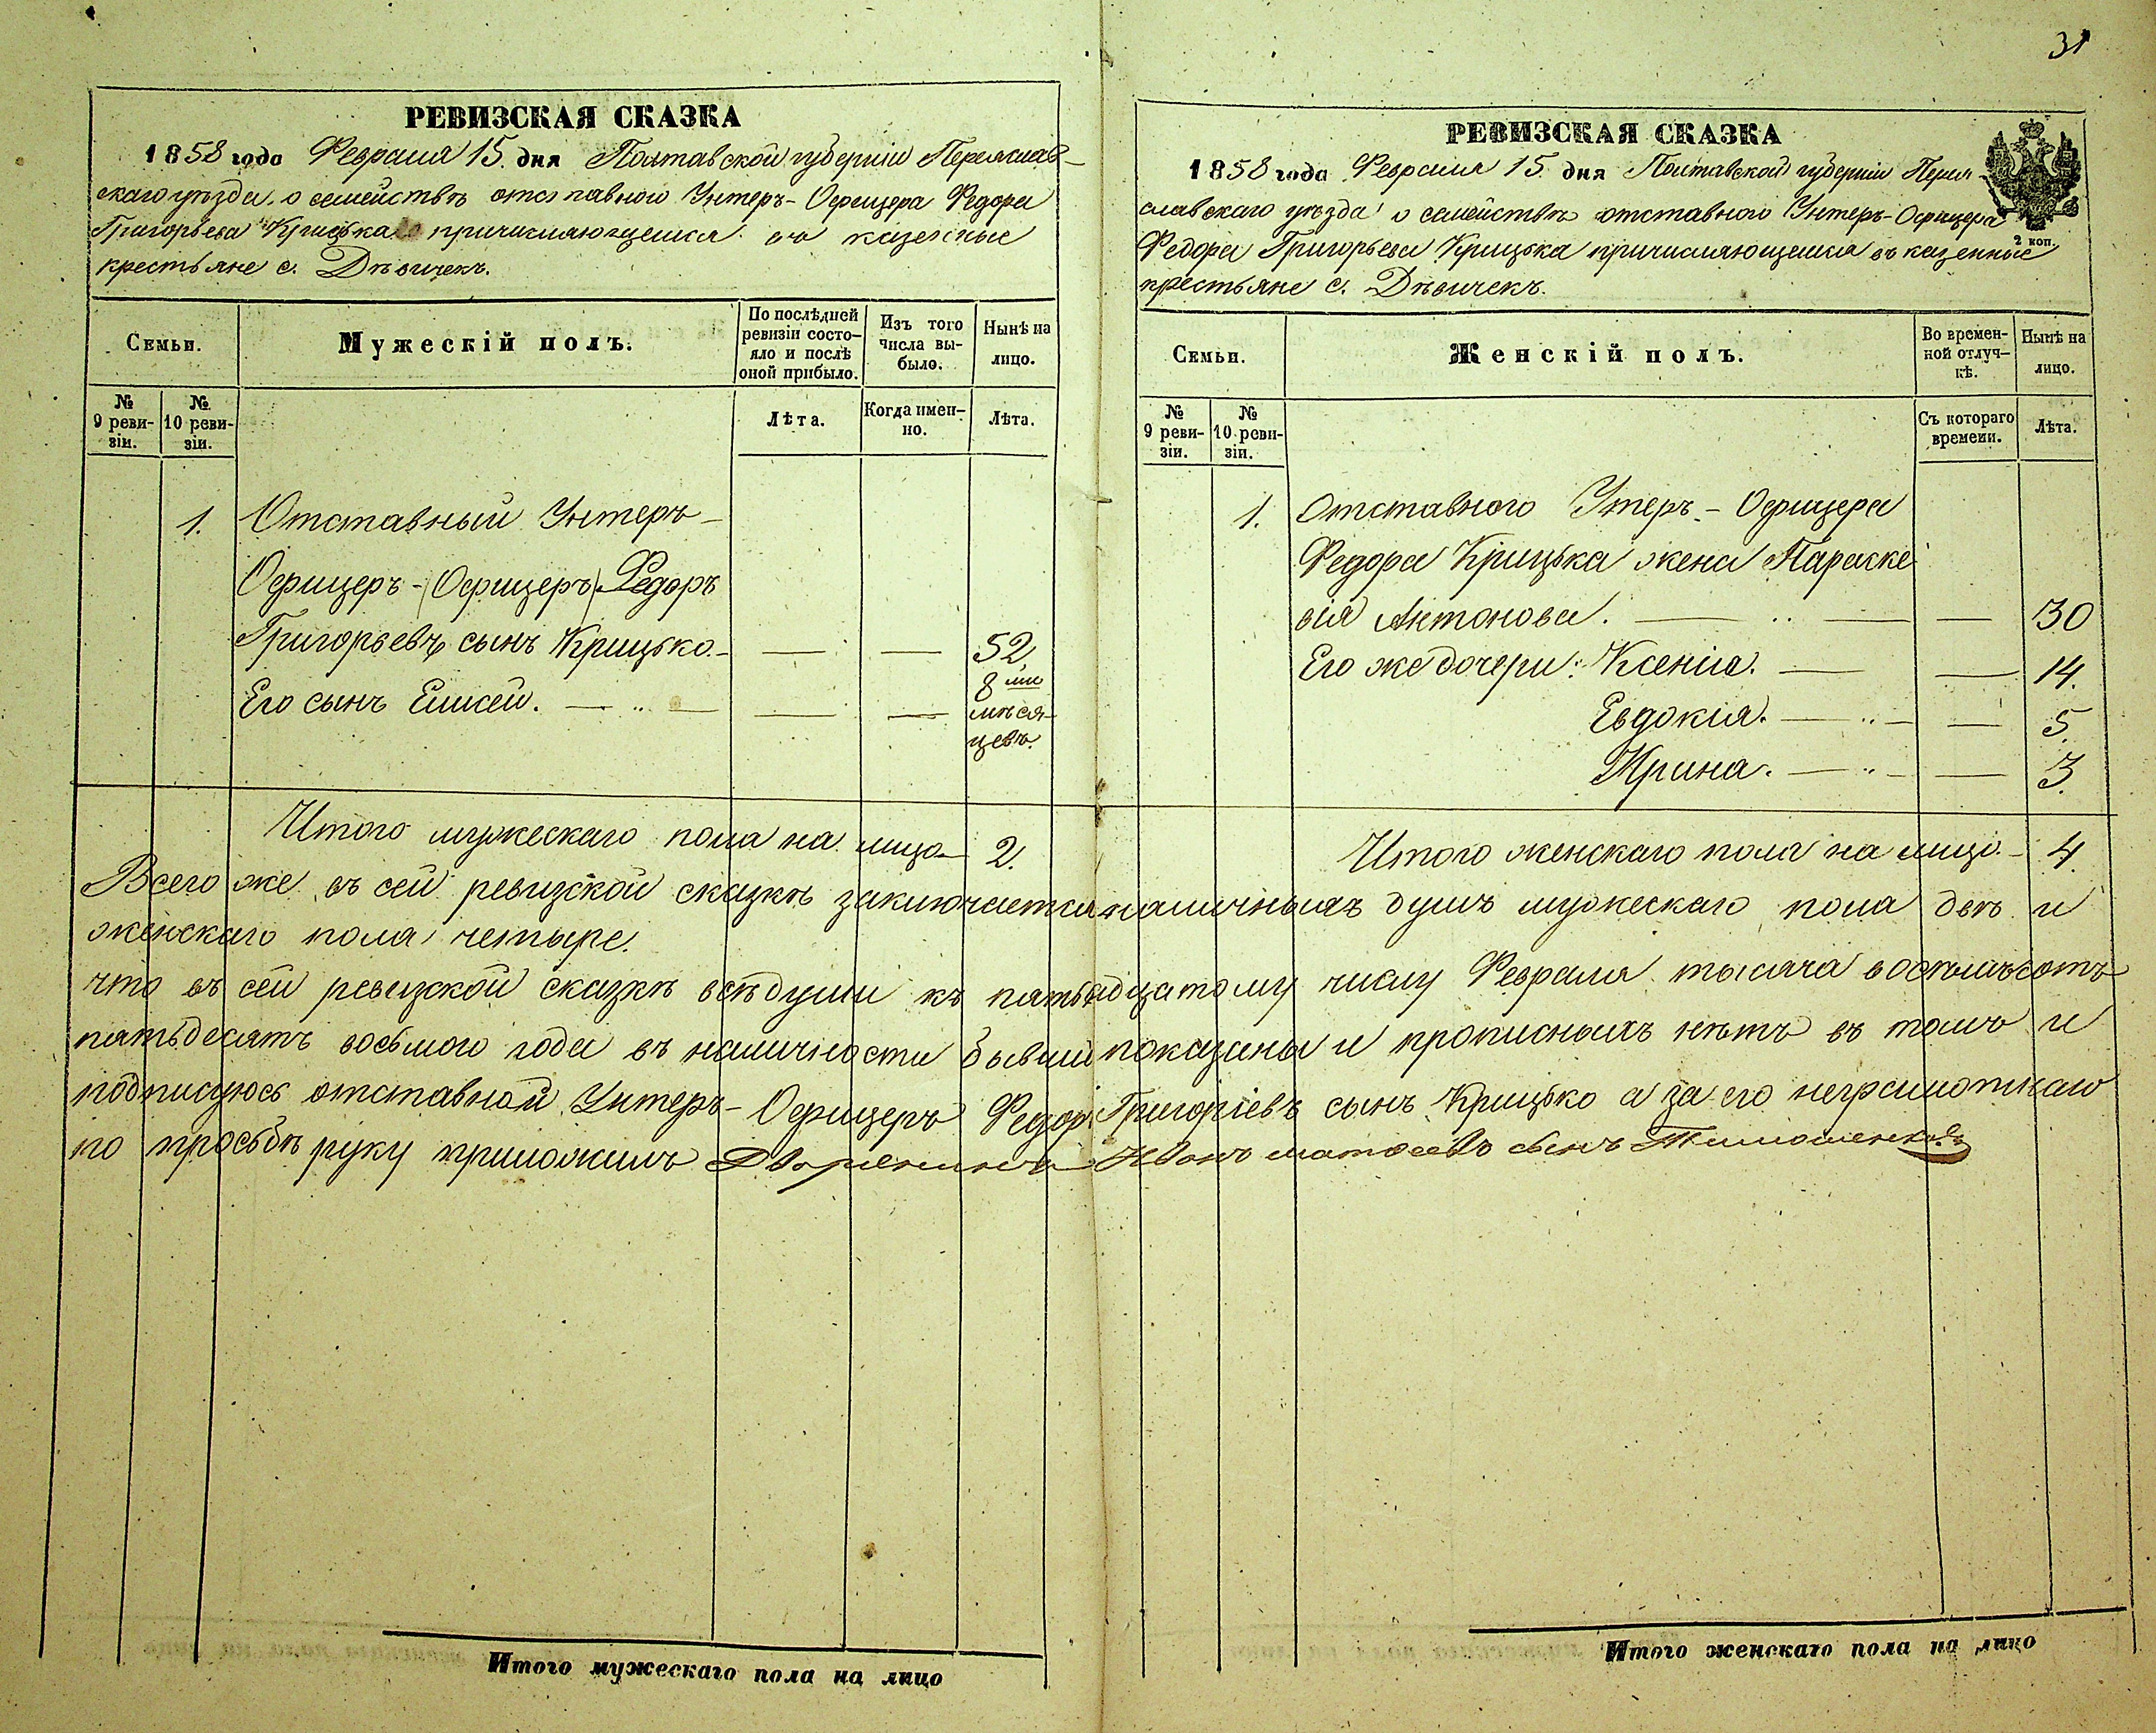 31
РЕВИЗСКАЯ СКАЗКА
1858 года Февраля 15. дня Полтавской губерніи Переяслав-
скаго уѣзда, о семействѣ отставного Унтеръ-Офицера Федора
Григорьева Крицька причисляющемся въ казенные
крестьяне с. Дѣвичекъ.
Семьи.
Мужескій полъ.
По послѣдней ревизіи состо-
яло и послѣ оной прибыло.
Изъ того числа вы-
было.
Нынѣ на лицо.
№ 9 реви-
зіи.
№ 10 реви-
зіи.
Лѣта.
Когда имен-
но.
Лѣта.
1. Отставный Унтеръ-
Офицеръ-(Офицеръ) Федоръ
Григорьевъ сынъ Крицько.- — — 52
Его сынъ Елисей. — „ — — — 8ми
мѣся-
цевъ.
Итого мужескаго пола на лицо— 2.
РЕВИЗСКАЯ СКАЗКА
1858 года Февраля 15. дня Полтавской губерніи Перея-
славскаго уѣзда о семействѣ отставного Унтеръ-Офицера
2 коп.
Федора Григорьева Крицька причисляющемся въ казенные
крестьяне с. Дѣвичекъ.
Семьи.
Женскій полъ.
Во времен-
ной отлуч-
кѣ.
Нынѣ на лицо.
№ 9 реви-
зіи.
№ 10 реви-
зіи.
Съ котораго времени.
Лѣта.
1. Отставного Утеръ-Офицера
Федора Крицька жена Параске
вія Антонова. — „ — — 30
Его же дочери: Ксенія. — — 14.
Евдокія. — „ — — 5.
Ирина. — „ — — 3.
Итого женскаго пола на лицо.— 4.
Всего же въ сей ревизской сказкѣ заключается наличныхъ душъ мужескаго пола двѣ и
женскаго пола четыре.
что въ сей ревизской сказкѣ всѣ души къ пятьнадцатому числу Февраля тысяча восемьсотъ
пятьдесятъ восьмого года въ наличности бывши показаны и прописныхъ нѣтъ въ томъ и
подписуюсь отставной Унтеръ-Офицеръ Федоръ Григоріевъ сынъ Крицько а за его неграмотнаго
по просьбѣ руку приложилъ Дворянинъ Иванъ матвеевъ сынъ Тимошенковъ
Итого мужескаго пола на лицо
Итого женскаго пола на лицо